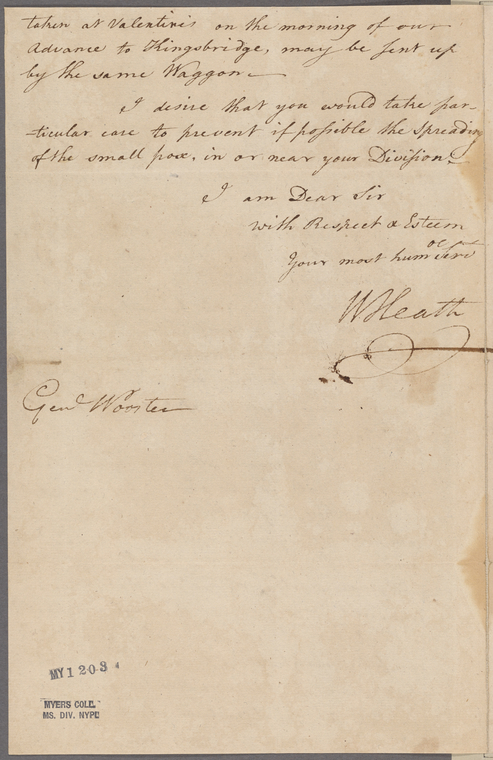 taken at Valentine's on the morning of our
Advance to Kingsbridge, may be sent up
by the same Waggon—
I desire that you would take par-
-ticular care to prevent if possible the spreading
of the small pox, in or near your Division.—
I am Dear Sir
with Respect & Esteem
Your most humble Servt
W Heath
Genl Wooster
MY 1203
MYERS COLL.
MS. DIV. NYPL